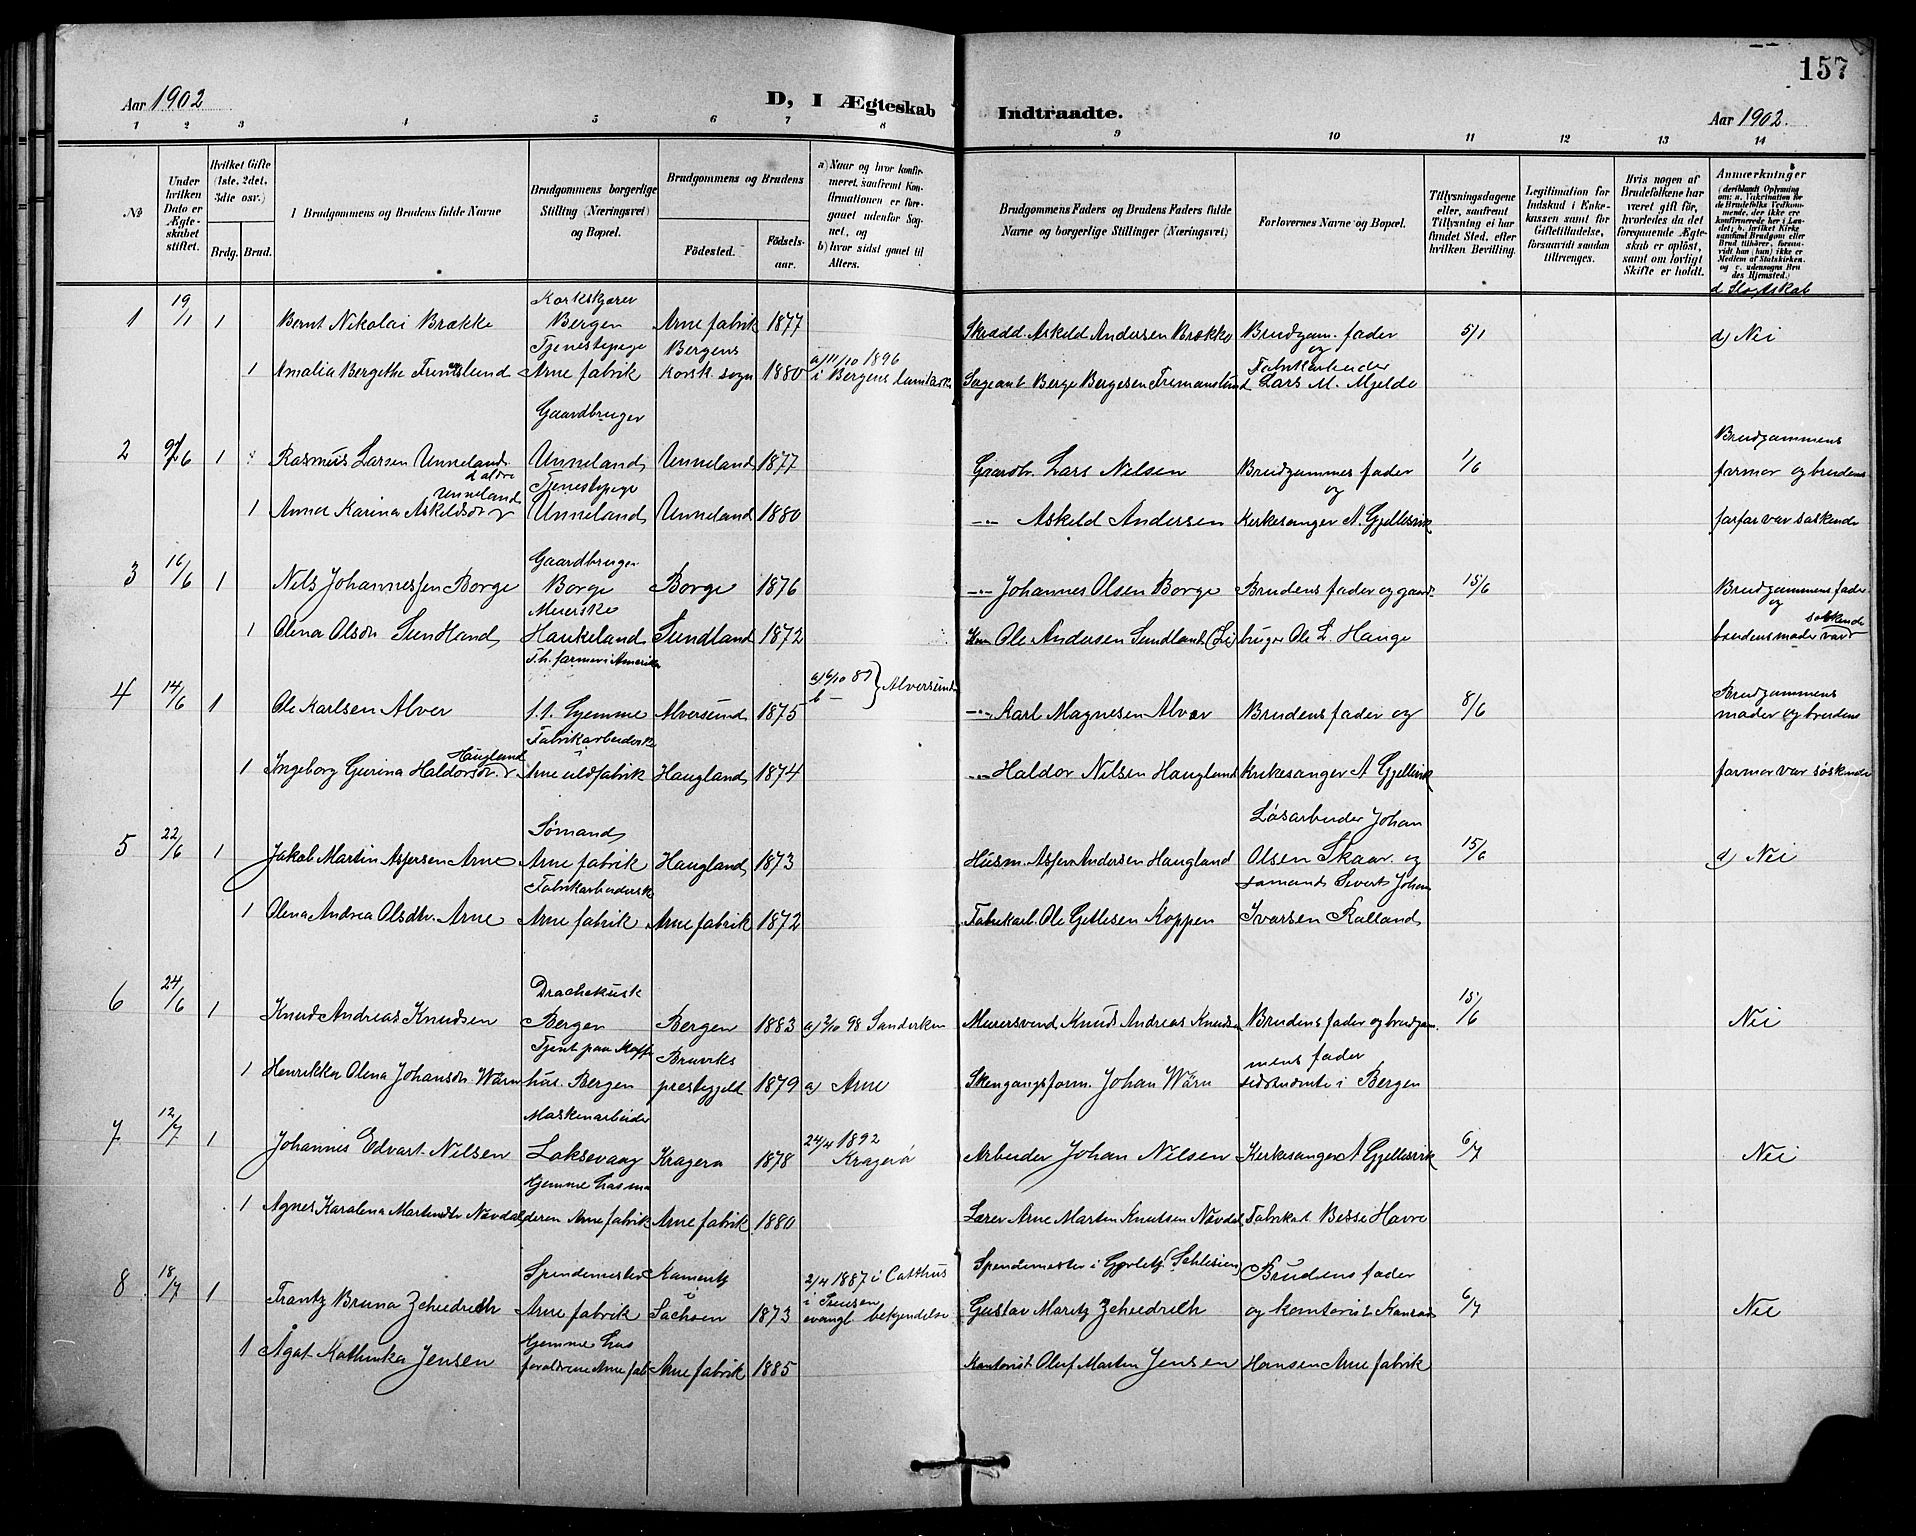 157
Aar 1902
D, I Ægteskab Indtraadte.
Aar 1902.
1 2 3 4 5 6 7 8 9 10 11 12 13 14
No
Under hvilken Dato er Ægteskabet stiftet.
Hvilket Gifte (1ste, 2det, 3die osv.)
Brdg. Brud.
1 Brudgommens og Brudens fulde Navne
Brudgommens borgerlige Stilling (Næringsvei) og Bopæl.
Brudgommens og Brudens
Fødested.
Fødselsaar.
a) Naar og hvor konfirmeret, samfremt Konfirmationen er foregaaet udenfor Sognet, og
b) hvor sidst gaaet til Alters.
Brudgommens Faders og Brudens Faders fulde Navne og borgerlige Stillinger (Næringsvei)
Forlovernes Navne og Bopæl.
Tillysningsdagene eller, samfremt Tillysning ei har fundet Sted, efter hvilken Bevilling.
Legitimation for Indskud i Enkekassen samt for Giftetilladelse, forsaavidt saadan tiltrænges.
Hvis nogen af Brudefolkene har været gift før, hvorledes da det foregaaende Ægteskab er opløst, samt om lovligt Skifte er holdt.
Anmærkninger
d Slægtskab
1 19/1 1 Bernt Nikolai Brække Korkskjærer Bergen Arne fabrik 1877
Skrædd. Askeld Andersen Brække Brudgom. fader og 5/1 d) Nei
1 Amalia Bergethe Tjenestepige Arne fabrik Bergens Korsk. sogn 1880 a) 11/10 1896 i Bergens
Berge Bergesen Fabrikarbeider Lars M. Mjelde
2 1 Rasmus Larsen Unneland Gaardbruger Unneland Unneland 1877
Gaardbr. Lars Nilsen Brudgommes fader og 1/6 Brudgommens farmor og brudens
1 Anna Karina Askeldsdr Unneland Tjenestepige Unneland Unneland 1880
-"- Askeld Andersen Kirkesanger A Gjellesvik farfar var søskende
3 16/6 1 Nils Johannessen Borge Gaardbruger Borge Borge 1876
-"- Johannes Olsen Borge Brudens fader og gaard- 15/6 Brudgommens fader og
1 Olena Olsdr Sundland Meierske Haukeland Sundland 1872
Ole Andersen Sundland (Li) bruger Ole L. Hauge brudens moder var søskende
4 14/6 1 Ole Karlsen Alver T.h. farmer i Amerika f. t. hjemme Alversund 1875 b - } Alversund
-"- Karl Magnesen Alver Brudens fader og 8/6 Brudgommens moder og brudens
1 Ingeborg Gurina Haldorsdr. Haugland Fabrikarbeiderske Arne uldfabrik Haugland 1874
-"- Haldor Nilsen Haugland Kirkesanger A Gjellesvik farmor var søskende
5 22/6 1 Jakob Martin Asfersen Arne Sømand Arne fabrik Haugland 1873
Husm. Asfer Andersen Haugland Løsarbeider Johan Olsen Skaar og 15/6 d) Nei
1 Olena Andrea Olsdtr. Arne Fabrikarbeidersk Arne fabrik Arne fabrik 1872
Fabrikarb. Ole Getlesen Koppen sømand Sivert Johan Ivarsen Kalland
6 24/6 1 Knud Andreas Knudsen Drachekusk Bergen Bergen 1883 a) 2/10 98 Sandviken
Murersvend Knud Andreas Knudsen Brudens fader og brudgom- 15/6 Nei
1 Henrikka Olena Johansdr. Wärn Tjent paa Kaffe hus. Bergen Bruviks prestegjeld 1879 a) Arne
Johan Wärn mens fader sidstnævnte i Bergen
7 12/7 1 Johannes Edvart Nilsen Maskinarbeider Laksevaag Kragerø 1878 24/4 1892 Kragerø
Arbeider Johan Nilsen Kirkesanger A Gjellesvik 6/7 Nei
1 Agnes Karolena Martindtr Növdal Hjemme hos moderen Arne fabrik Arne fabrik 1880
Lærer Arne Martin Knutsen Növdal Fabrikat Besse Havre
8 18/7 1 Frantz Bruno Zchiedrich Spindemester Arne fabrik Kamentz i Sachsen 1873 2/4 1887 i i evangl. bekjendelse
Spindemester i Görlitz (Schlesien) Gustav Moritz Zchiedrich Brudens fader og kontorist Konrad 6/7 Nei
1 Ågot Kathinka Jensen Hjemme hos forældrene Arne fab Arne fabrik 1885
Kontorist Oluf Martin Jensen Hansen Arne fabrik